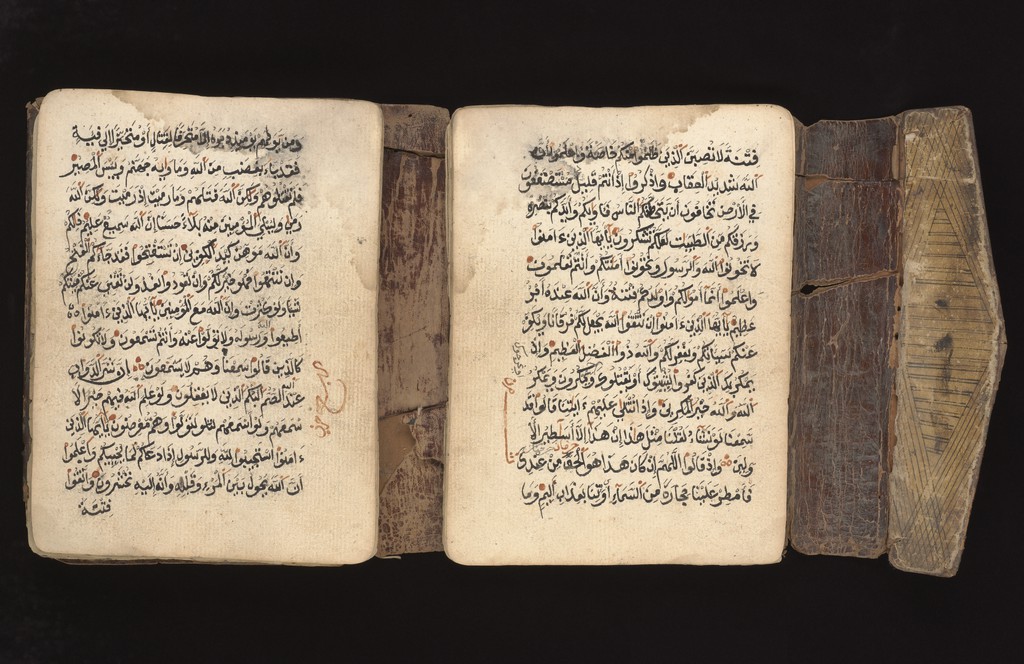 ومن يولهم يومئذ دبره إلا متحرفا لقتال أو متحيزا إلى فئة
فقد باء بغضب من الله ومأويه جهنم وبئس المصير
فلم تقتلوهم ولكن الله قتلهم وما رميت إذ رميت ولكن الله
رمى وليبلي المؤمنين منه بلاء حسنا إن الله سميع عليم ذلكم
وأن الله موهن كيد الكفرين إن تستفتحوا فقد جاءكم الفتح
وإن تنتهوا فهو خير لكم وإن تعودوا نعد ولن تغني عنكم فئتكم
شيئا ولو كثرت وأن الله مع المؤمنين يأيها الذين ءامنوا
أطيعوا الله ورسوله ولا تولوا عنه وأنتم تسمعون ولا تكونوا
كالذين قالوا سمعنا وهم لا يسمعون إن شر الدواب
عند الله الصم البكم الذين لا يعقلون ولو علم الله فيهم خيرا لأ
سمعهم ولو أسمعهم لتولوا وهم معرضون يأيها الذين
ءامنوا استجيبوا لله وللرسول إذا دعاكم لما يحييكم واعلموا
أن الله يحول بين المرء وقلبه وأنه إليه تحشرون واتقوا
فتنة
فتنة لا تصيبن الذين ظلموا منكم خاصة واعلموا أن
الله شديد العقاب واذكروا إذ أنتم قليل مستضعفون
في الأرض تخافون أن يتخطفكم الناس فآويكم وأيدكم بنصره
ورزقكم من الطيبت لعلكم تشكرون يأيها الذين ءامنوا
لا تخونوا الله والرسول وتخونوا أمنتكم وأنتم تعلمون
واعلموا أنما أمولكم وأولدكم فتنة وأن الله عنده أجر
عظيم يأيها الذين ءامنوا إن تتقوا الله يجعل لكم فرقانا ويكفر
عنكم سيئاتكم ويغفر لكم والله ذوا الفضل العظيم وإذ
يمكر بك الذين كفروا ليثبتوك أو يقتلوك ويمكرون ويمكر
الله والله خير المكرين وإذا تتلى عليهم ءايتنا قالوا قد
سمعنا لو نشاء لقلنا مثل هذا إن هذا إلا أسطير الأ
ولين وإذ قالوا اللهم إن كان هذا هو الحق من عندك
فأمطر علينا حجارة من السماء أو ئتنا بعذاب أليم وما